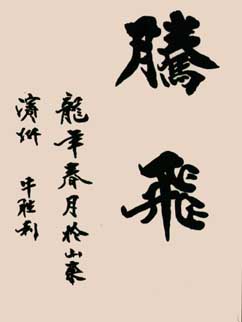 騰飛
龍年春月於山東
濱州 牛勝利